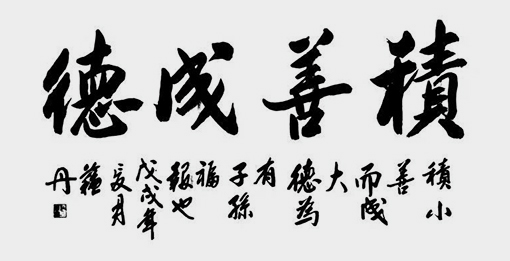 積善成德
積小
善
而成
大
德為
有
子孫
福
報也
戊戌年
夏月
丹